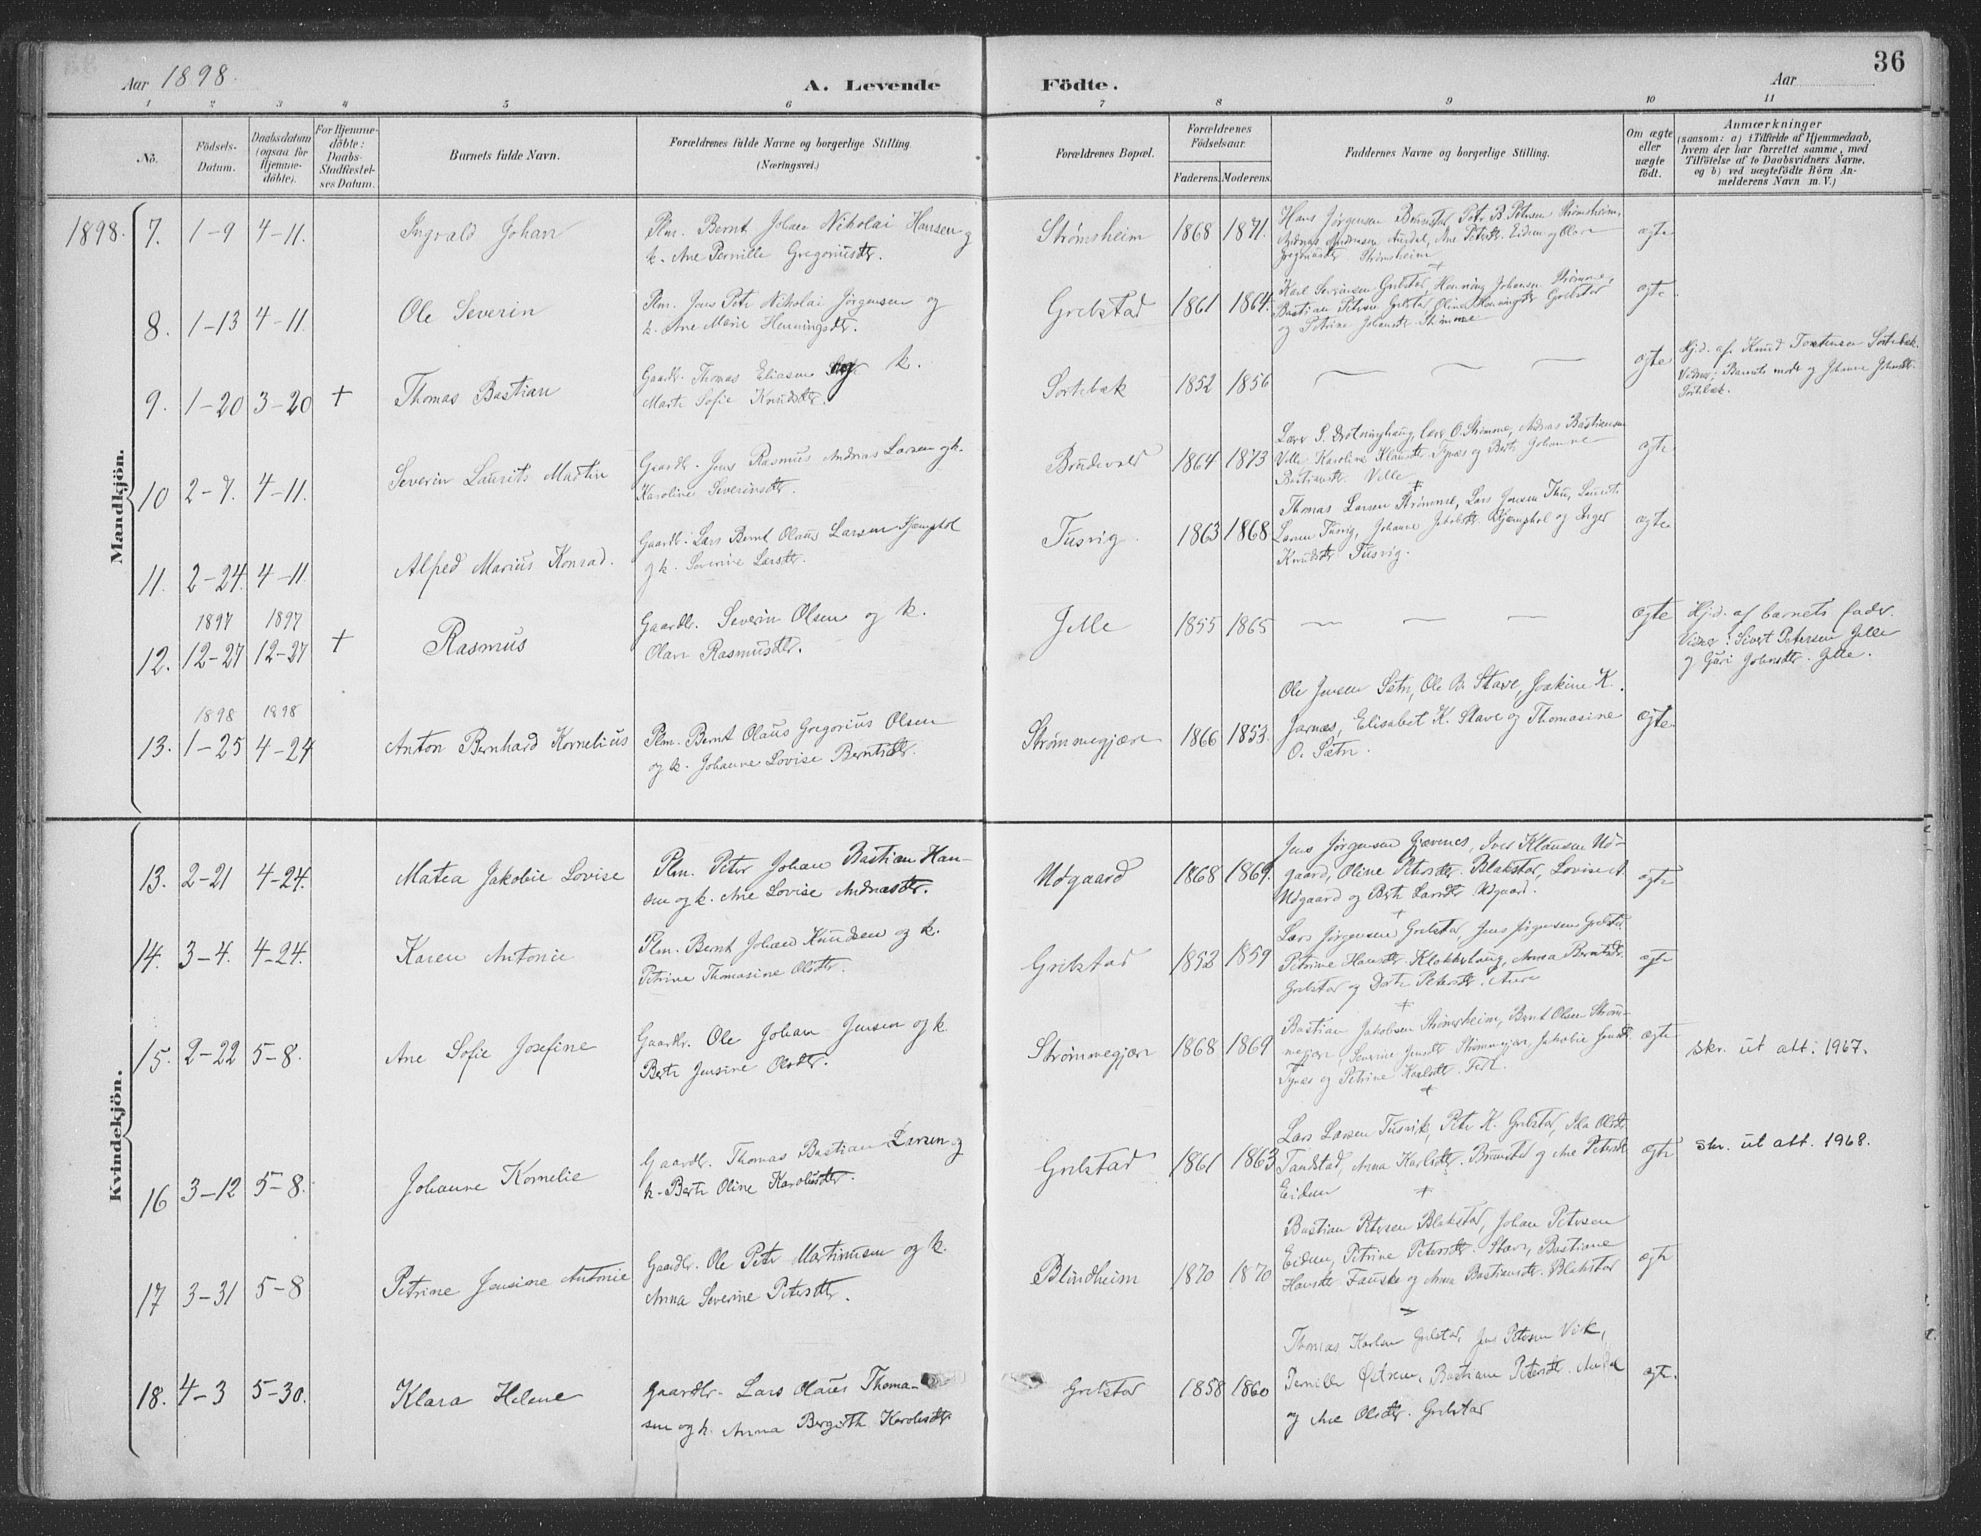 36
Aar 1898.
A. Levende Födte.
Aar
1 2 3 4 5 6 7 8 9 10 11
No.
Födsels-
Datum.
Daabsdatum
(ogsaa for
Hjemme-
döbte).
For Hjemme-
döbte:
Daabs-
Stadfæstel-
ses Datum.
Barnets fulde Navn.
Forældrenes fulde Navne og borgerlige Stilling
(Næringsvei.)
Forældrenes Bopæl.
Forældrenes
Födselsaar.
Faderens. Moderens.
Faddernes Navne og borgerlige Stilling.
Om ægte
eller
uægte
födt.
Anmærkninger
(saasom: a) i Tilfælde af Hjemmedaab,
hvem der har forrettet samme, med
Tilföielse af to Daabsvidners Navne,
og b) ved uægtefödte Börn An-
melderens Navn m. V.)
Mandkjön.
1898. 7. 1-9 4-11. Ingvald Johan
Plm. Bernt Johan Nikolai Hansen og
k. Ane Pernille Gregoriusdtr.
Strømsheim 1868 1871.
Hans Jørgensen Brunstad, Petr B. Petersen Strømsheim,
Andreas Andreasen Aurdal, Ane Petersdtr. Eidem og Olave
Gregoriusdtr Strømsheim
ægte
8. 1-13 4-11. Ole Severin
Plm. Jens Petr Nikolai Jørgensen og
k. Ane Marie Henningsdtr.
Grebstad 1861 1864.
Karl Severinsen Grebstad, Henning Johansen Strømme,
Bastian Petersen Grebstad, Oline Henningsdtr Grebstad
og Petrine Johansdtr. Strømme
ægte
9. 1-20 3-20 + Thomas Bastian
Gaardbr. Thomas Eliasen og k.
Marte Sofie Knudsdtr.
Sortebak 1852 1856
— — —
ægte
Hj.d. af Knud Torstensen Sortebak.
Vidner: Barnets mode og Johanne Johansdtr.
Sortebak.
10 2-7. 4-11. Severin Laurits Martin
Gaardbr. Jens Rasmus Andreas Larsen og k.
Karoline Severinsdtr.
Brudevold 1864 1873
Lærer P. Drotninghaug, lærer O. Strømme, Andreas Bastiansen
Ville Karoline Klausdtr. Tynæs og Berte Johanne
Bastiansdtr. Ville
ægte
11. 2-24. 4-11. Alfred Marius Konrad.
Gaardbr. Lars Bernt Olaus Larsen Kjemphol
og k. Severine Larsdtr.
Tusvig. 1863 1868
Thomas Larsen Strømme, Lars Jensen Thu, Laurits
Larsen Tusvig, Johanne Jakobsdtr. Kjemphol og Inger
Knudsdtr Tusvig.
ægte
1897 1897
12. 12-27 12-27 + Rasmus
Gaardbr. Severin Olsen og k.
Olave Rasmusdtr.
Jelle 1855 1865
— — —
ægte
Hj.d. af barnets fader.
Vidner: Sivert Petersen Jelle
og Guri Johnsdtr. Jelle.
1898 1898
13. 1-25 4-24 Anton Bernhard Kornelius
Plm. Bernt Olaus Gregorius Olsen
og k. Johanne Lovise Berntsdtr.
Strømmegjære 1866 1853.
Ole Jensen Sætre, Ole B. Stave, Joakine K.
Jarnæs, Elisabet K. Stave og Thomasine
O. Sætre.
ægte
Kvindekjön.
13. 2-21 4-24. Matea Jakobie Lovise
Plm. Peter Johan Bastian Han-
sen og k. Ane Lovise Andreasdtr.
Udgaard 1868 1869.
Jens Jørgensen Gjævenes, Iver Klausen Ud-
gaard, Oline Petersdtr. Blakstad, Lovise A.
Udgaard og Berte Larsdtr Udgaard.
ægte
14. 3-4. 4-24. Karen Antonie
Plm. Bernt Johan Knudsen og k.
Petrine Thomasine Olsdtr.
Grebstad 1852 1859
Lars Jørgensen Grebstad, Jens Jørgensen Grebstad
Petrine Hansdtr. Klokkehaug, Anna Berntsdtr.
Grebstad og Dorte Petersdtr. Aure
ægte
15. 2-22 5-8. Ane Sofie Josefine
Gaardbr. Ole Johan Jensen og k.
Berte Jensine Olsdtr.
Strømmegjære 1868 1869
Bastian Jakobsen Strømsheim, Bernt Olsen Strøm-
megjære, Severine Jensdtr. Strømmegjære, Jakobie Jensdtr
Tynæs og Petrine Karlsdtr. Fedt.
ægte
skr. ut att. 1967.
16 3-12 5-8. Johanne Kornelie
Gaardbr. Thomas Bastian Larsen og
k. Berte Oline Karolusdtr.
Grebstad 1861 1863
Lars Larsen Tusvik, Petr K. Grebstad, Ida Olsdtr.
Tandstad, Anna Karlsdtr. Brunstad og Ane Petersdtr
Eidem
ægte
skr. ut att. 1968.
17 3-31 5-8 Petrine Jensine Antonie
Gaardbr. Ole Petr Martinusen og k.
Anna Severine Petersdtr.
Blindheim 1870 1870
Bastian Petersen Blakstad, Johan Petersen
Eidem, Petrine Petersdtr. Stave, Bastiane
Hansdtr. Fauske og Anna Bastiansdtr. Blakstad
ægte
18. 4-3 5-30. Klara Helene
Gaardbr. Lars Olaus Thoma-
sen og k. Anna Bergithe Karolusdtr.
Grebstad 1858 1860
Thomas Karlsen Grebstad, Jens Petersen Vik,
Pernille Bastiane Petersdtr.
og Ane Olsdtr. Grebstad
ægte.